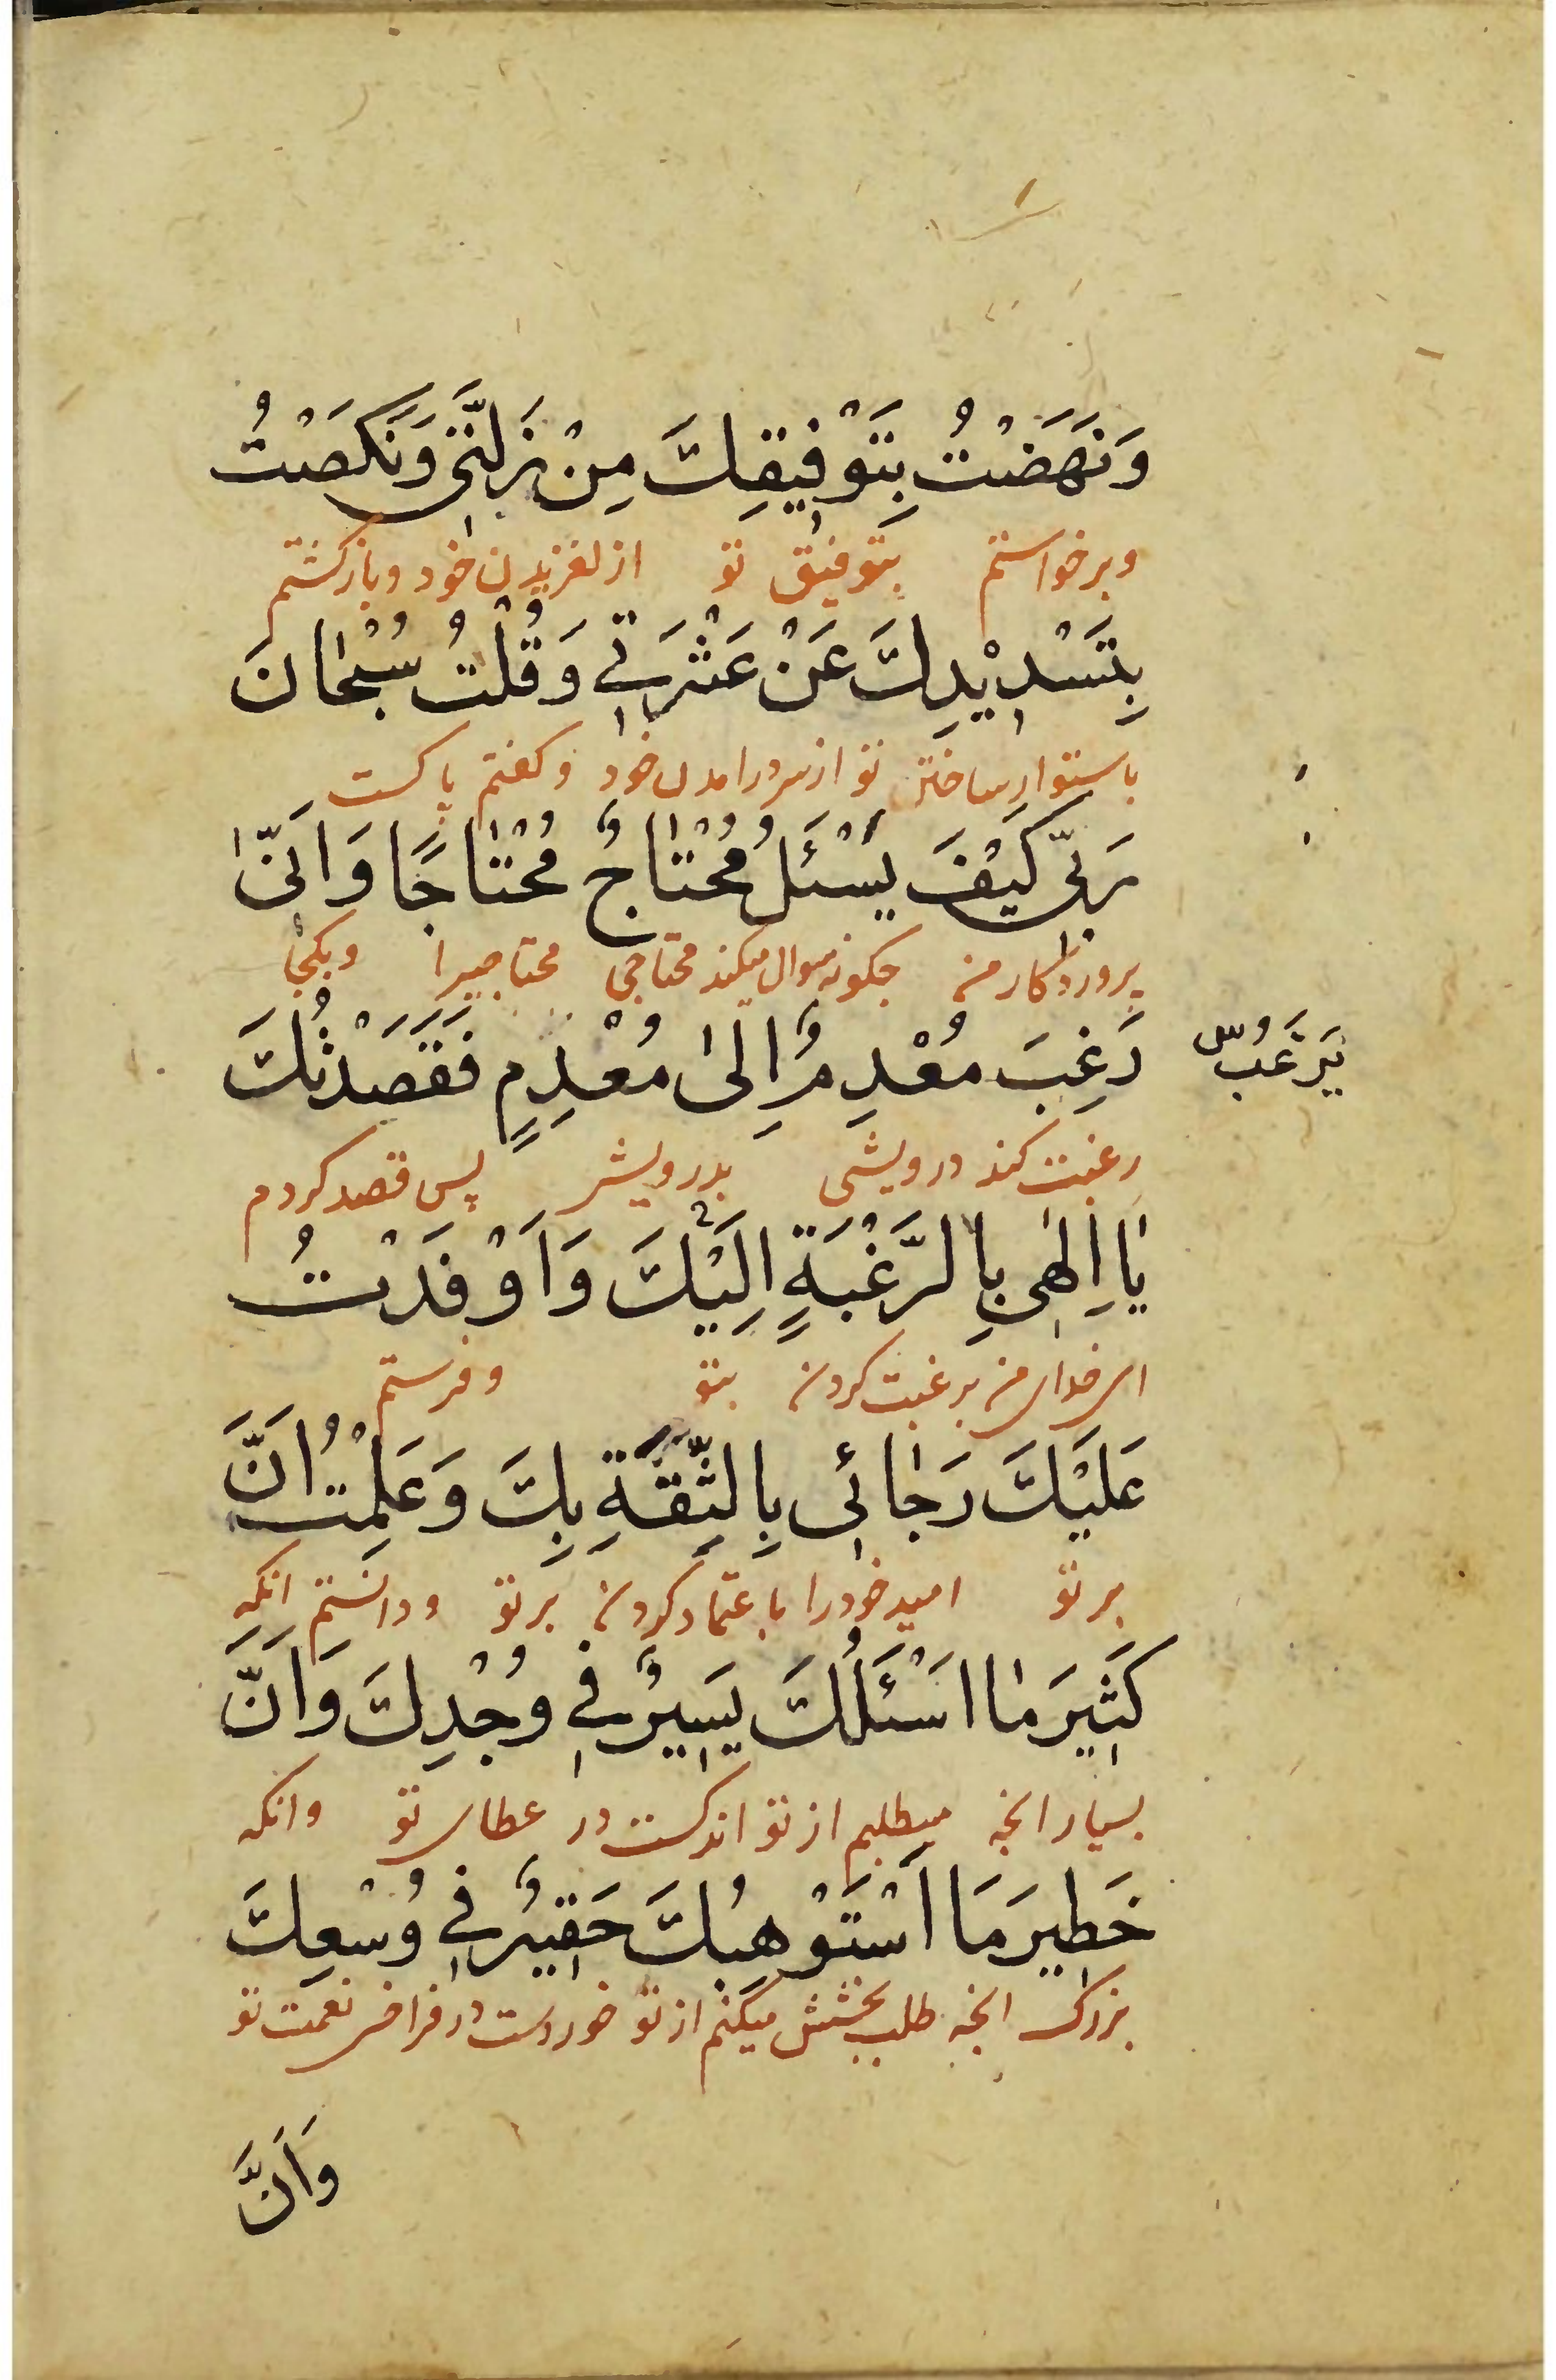 وَنَهَضْتُ بِتَوْفِيقِكَ مِنْ زَلَّتِي وَنَكَصْتُ
وبرخواستم بتوفیق تو از لغزیدن خود وبازکشتم
بِتَسْدِيْدِكَ عَنْ عَثْرَتِي وَقُلْتُ سُبْحَانَ
باستوار ساختن تو از سر درامدن خود وکفتم پاکست
رَبِّي كَيْفَ يَسْئَلُ مُحْتَاجٌ مُحْتَاجًا وَاَنّىٰ
پروردکار من چکونه سوال میکند محتاجی محتاجیرا وبکجا
رَغِبَ مُعْدِمٌ اِلىٰ مُعْدِمٍ فَقَصَدْتُكَ
يَرْغَبُ س
رغبت کند درویشی بدرویش پس قصد کردم
يَا اِلٰهِي بِالرَّغْبَةِ اِلَيْكَ وَاَوْفَدْتُ
ای خدای من برغبت کردن بتو وفرستم
عَلَيْكَ رَجَائِي بِالثِّقَةِ بِكَ وَعَلِمْتُ اَنَّ
بر تو امید خود را باعتماد کردن بر تو ودانستم انکه
كَثِيرَ مَا اَسْئَلُكَ يَسِيرٌ فِي وُجْدِكَ وَاَنَّ
بسیار انچه میطلبم از تو اندکست در عطای تو وانکه
خَطِيرَ مَا اَسْتَوْهِبُكَ حَقِيرٌ فِي وُسْعِكَ
بزرک انچه طلب بخشش میکنم از تو خوردست در فراخی نعمت تو
وَاَنَّ